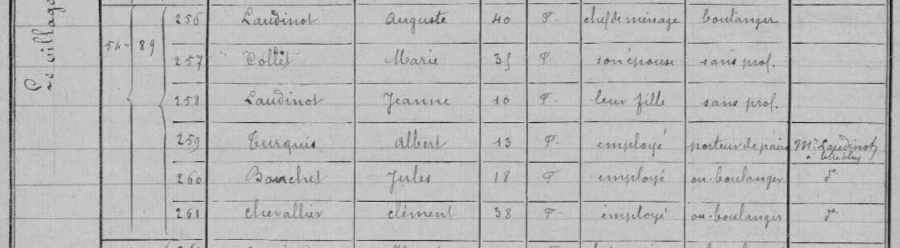 Le village
256 Laudinot Auguste 40 F. chef de ménage boulanger
54 - 89 257 Collet Marie 35 F. son épouse sans prof.
258 Laudinot Jeanne 10 F. leur fille sans prof.
259 Turquis Albert 13 F. employé porteur de pain Mr Laudinot
260 Bouchet Jules 18 F employé ou-boulanger do
261 Chevallier Clément 38 F. employé ou-boulanger do